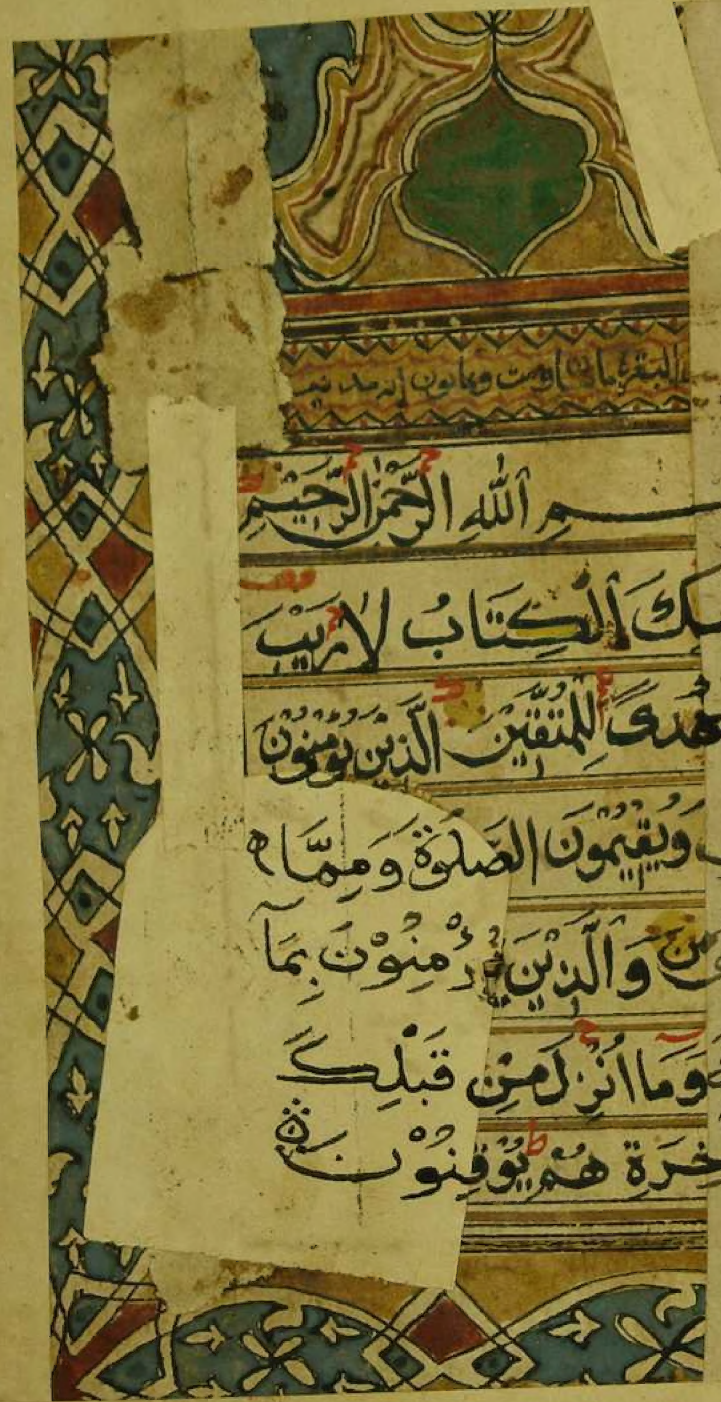 البقرة مايتان وست وثمانون آيه مدنيه
ـمِ اللهِ الرَّحْمٰنِ الرَّحِيْمِ
ـلِكَ الْكِتَابُ لَا رَيْبَ
هُدىً لِلْمُتَّقِيْنَ الَّذِيْنَ يُؤْمِنُوْنَ
وَيُقِيْمُوْنَ الصَّلٰوةَ وَمِمَّا
وَالَّذِيْنَ يُؤْمِنُوْنَ بِمَآ
وَمَا اُنْزِلَ مِنْ قَبْلِكَ
خِرَةِ هُمْ يُوْقِنُوْنَ